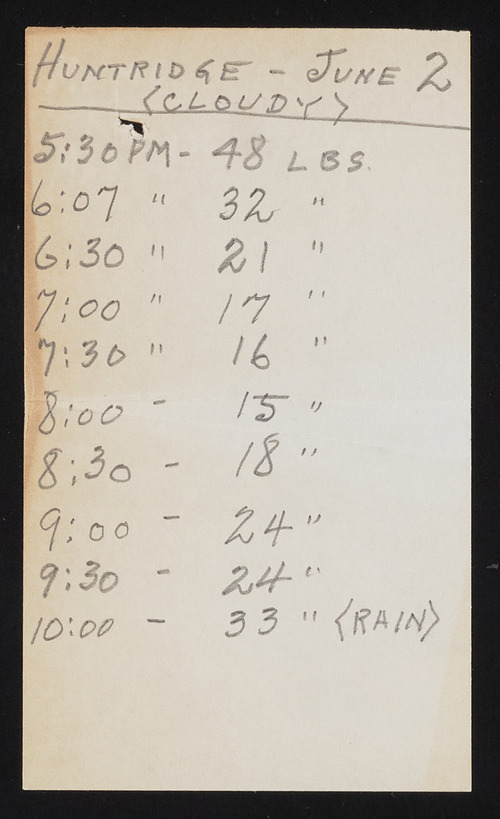 HUNTRIDGE - JUNE 2
<CLOUDY>
5:30PM - 48 LBS.
6:07 " 32 "
6:30 " 21 "
7:00 " 17 "
7:30 " 16 "
8:00 - 15 "
8:30 - 18 "
9:00 - 24 "
9:30 - 24 "
10:00 - 33 " <RAIN>